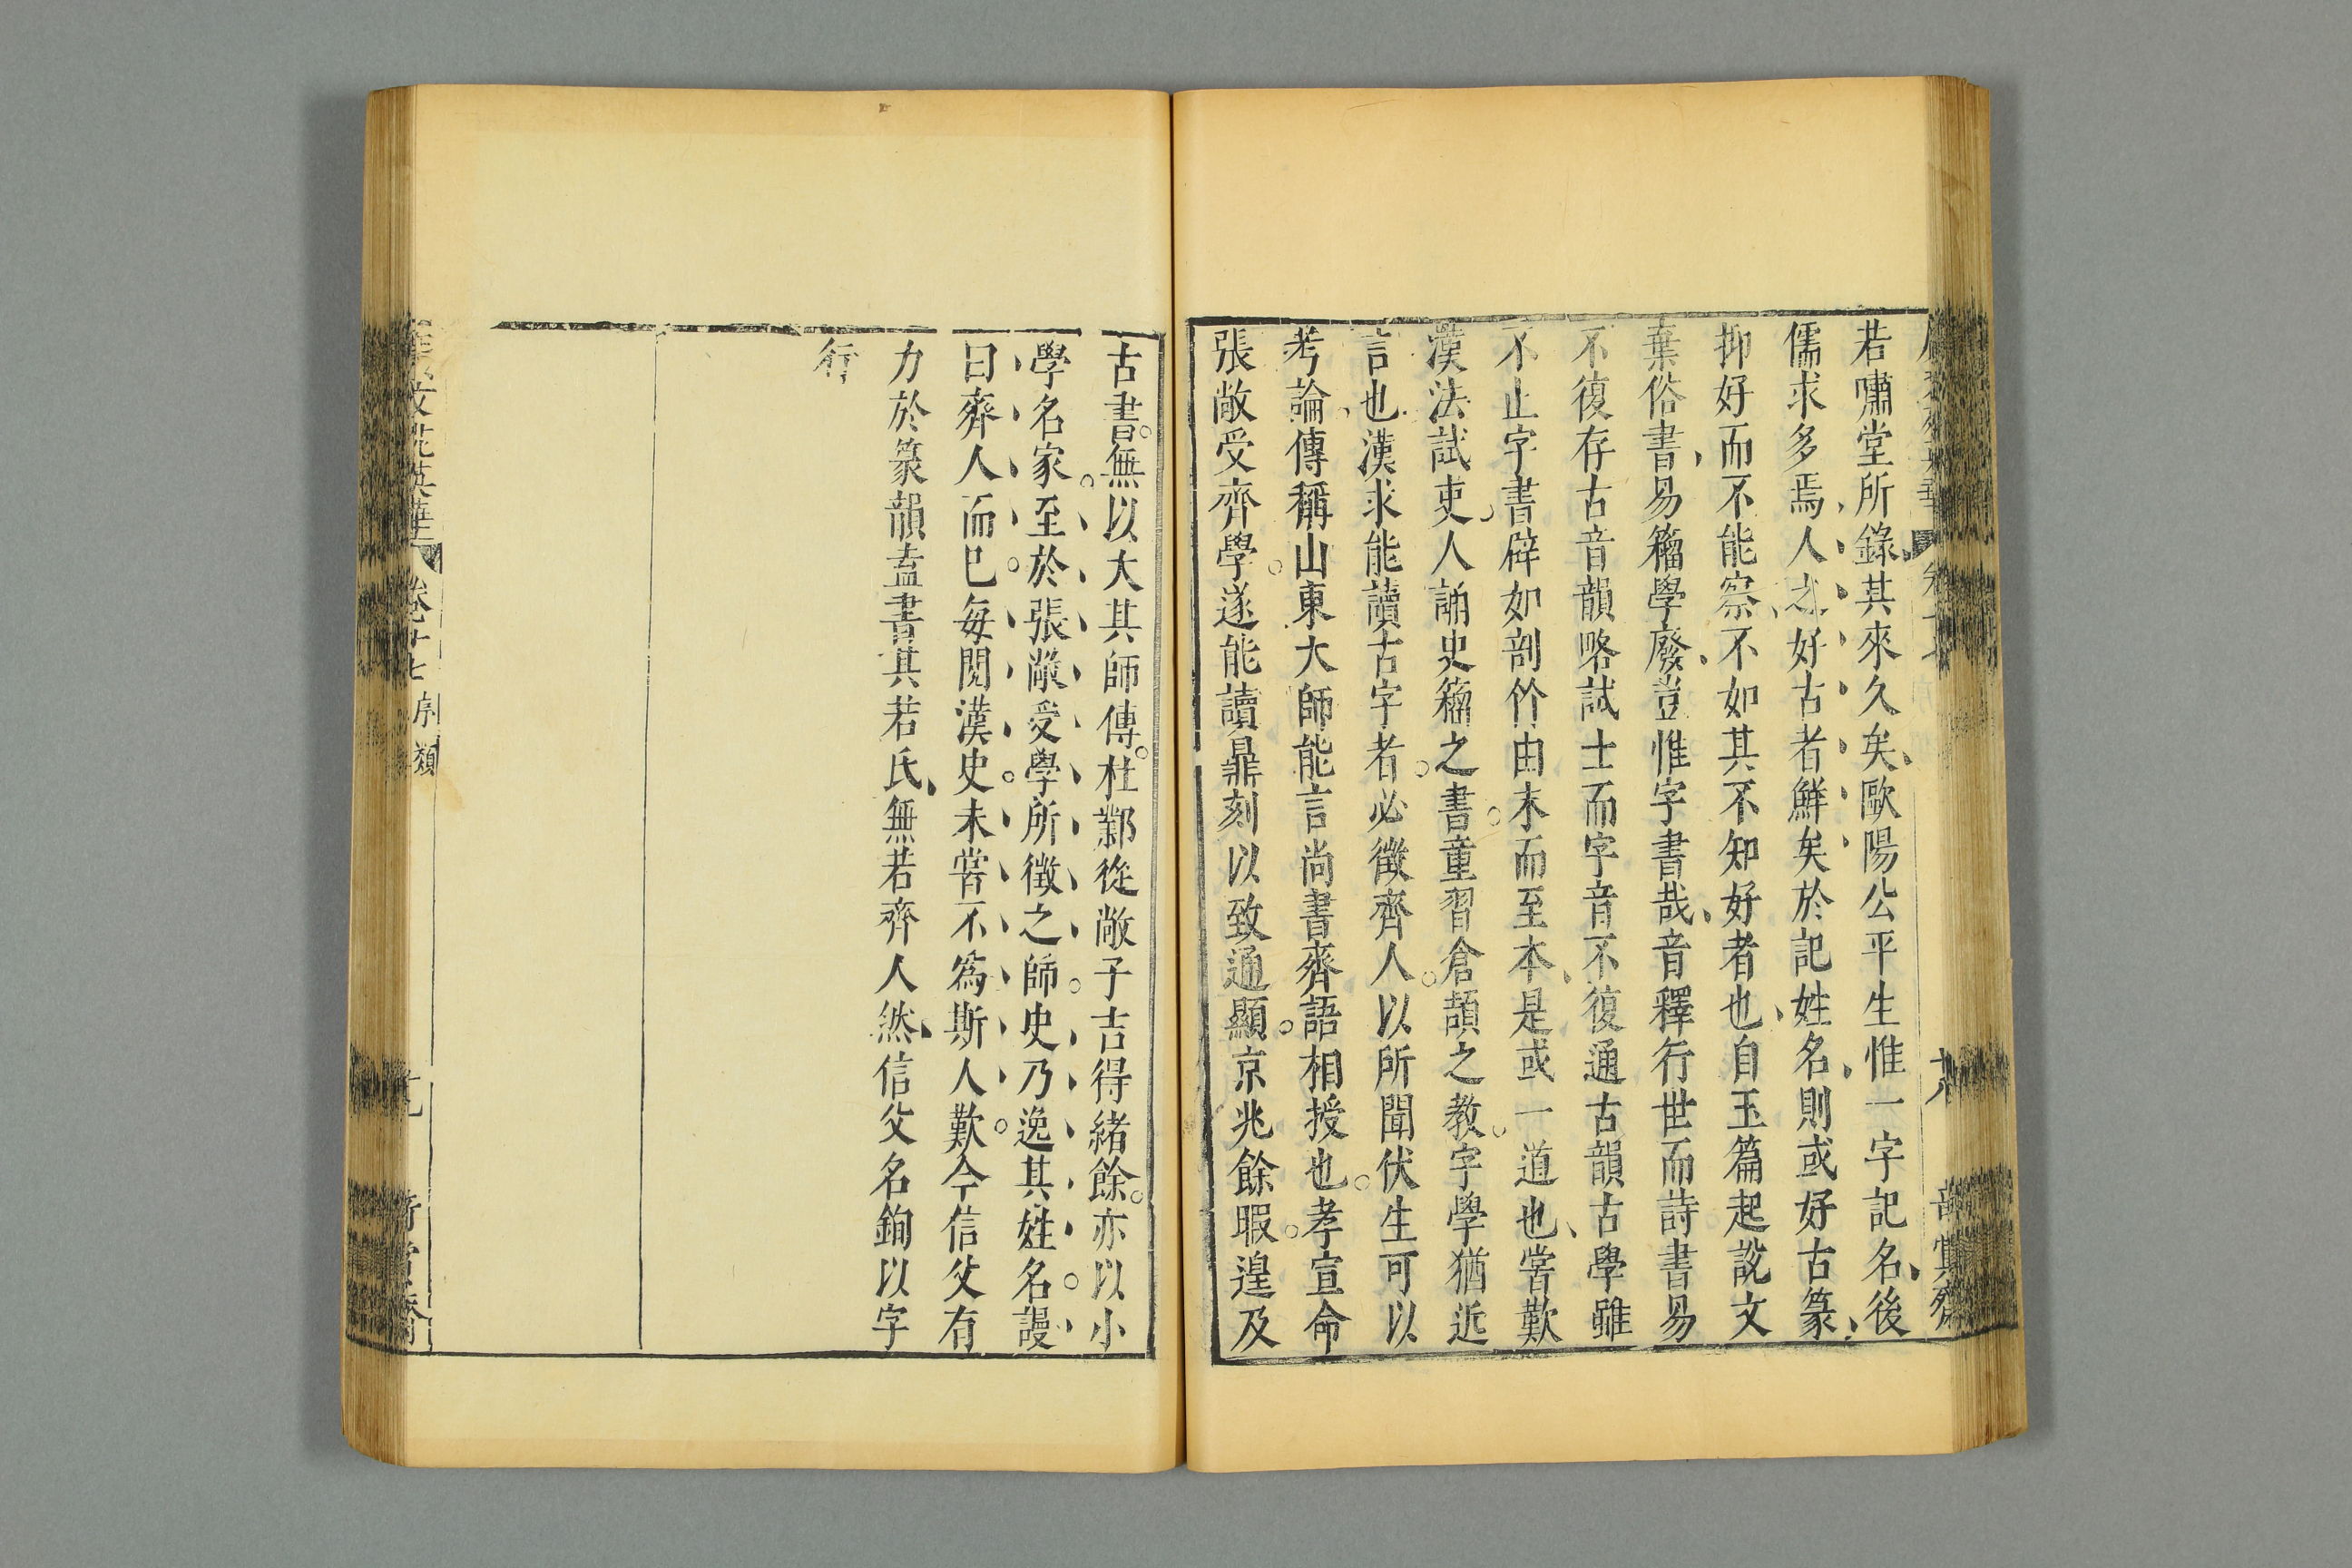 若嘯堂所錄其來久矣歐陽公平生惟一字記名後
儒求多焉人之好古者鮮矣於記姓名則或好古篆
抑好而不能察不如其不知好者也自玉篇起說文
棄俗書易籀學廢豈惟字書哉音釋行世而詩書易
不復存古音韻略試士而字音不復通古韻古學雖
不止字書辟如剖竹由末而至本是或一道也嘗歎
漢法試吏人誦史籀之書童習倉頡之教字學猶近
言也漢求能讀古字者必徵齊人以所聞伏生可以
考論傳稱山東大師能言尚書齊語相授也孝宣命
張敞受齊學遂能讀鼎刻以致通顯京兆餘暇遑及
古書無以大其師傳杜鄴從敞子吉得緒餘亦以小
學名家至於張敞受學所徵之師史乃逸其姓名謾
曰齊人而已每閱漢史未嘗不為斯人歎今信父有
力於篆韻盍書其若氏無若齊人然信父名銁以字
行
文苑英華 卷廿七 序類